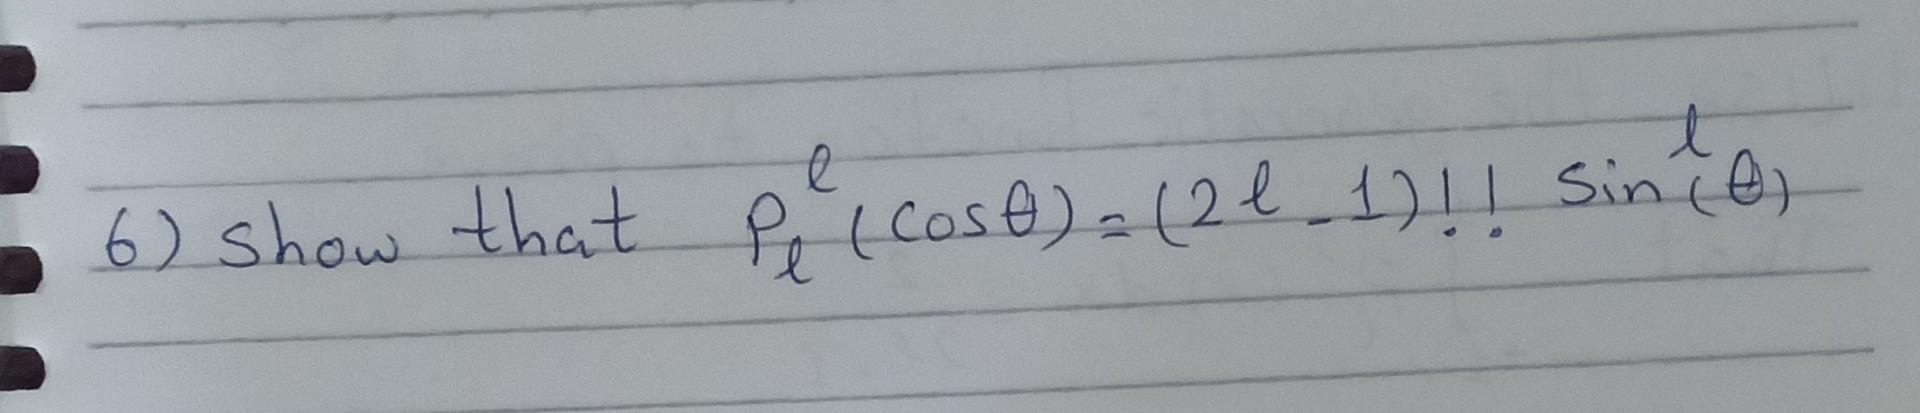 6) show that P_ℓ^ℓ (cosθ) = (2ℓ-1)!! sin^ℓ(θ)